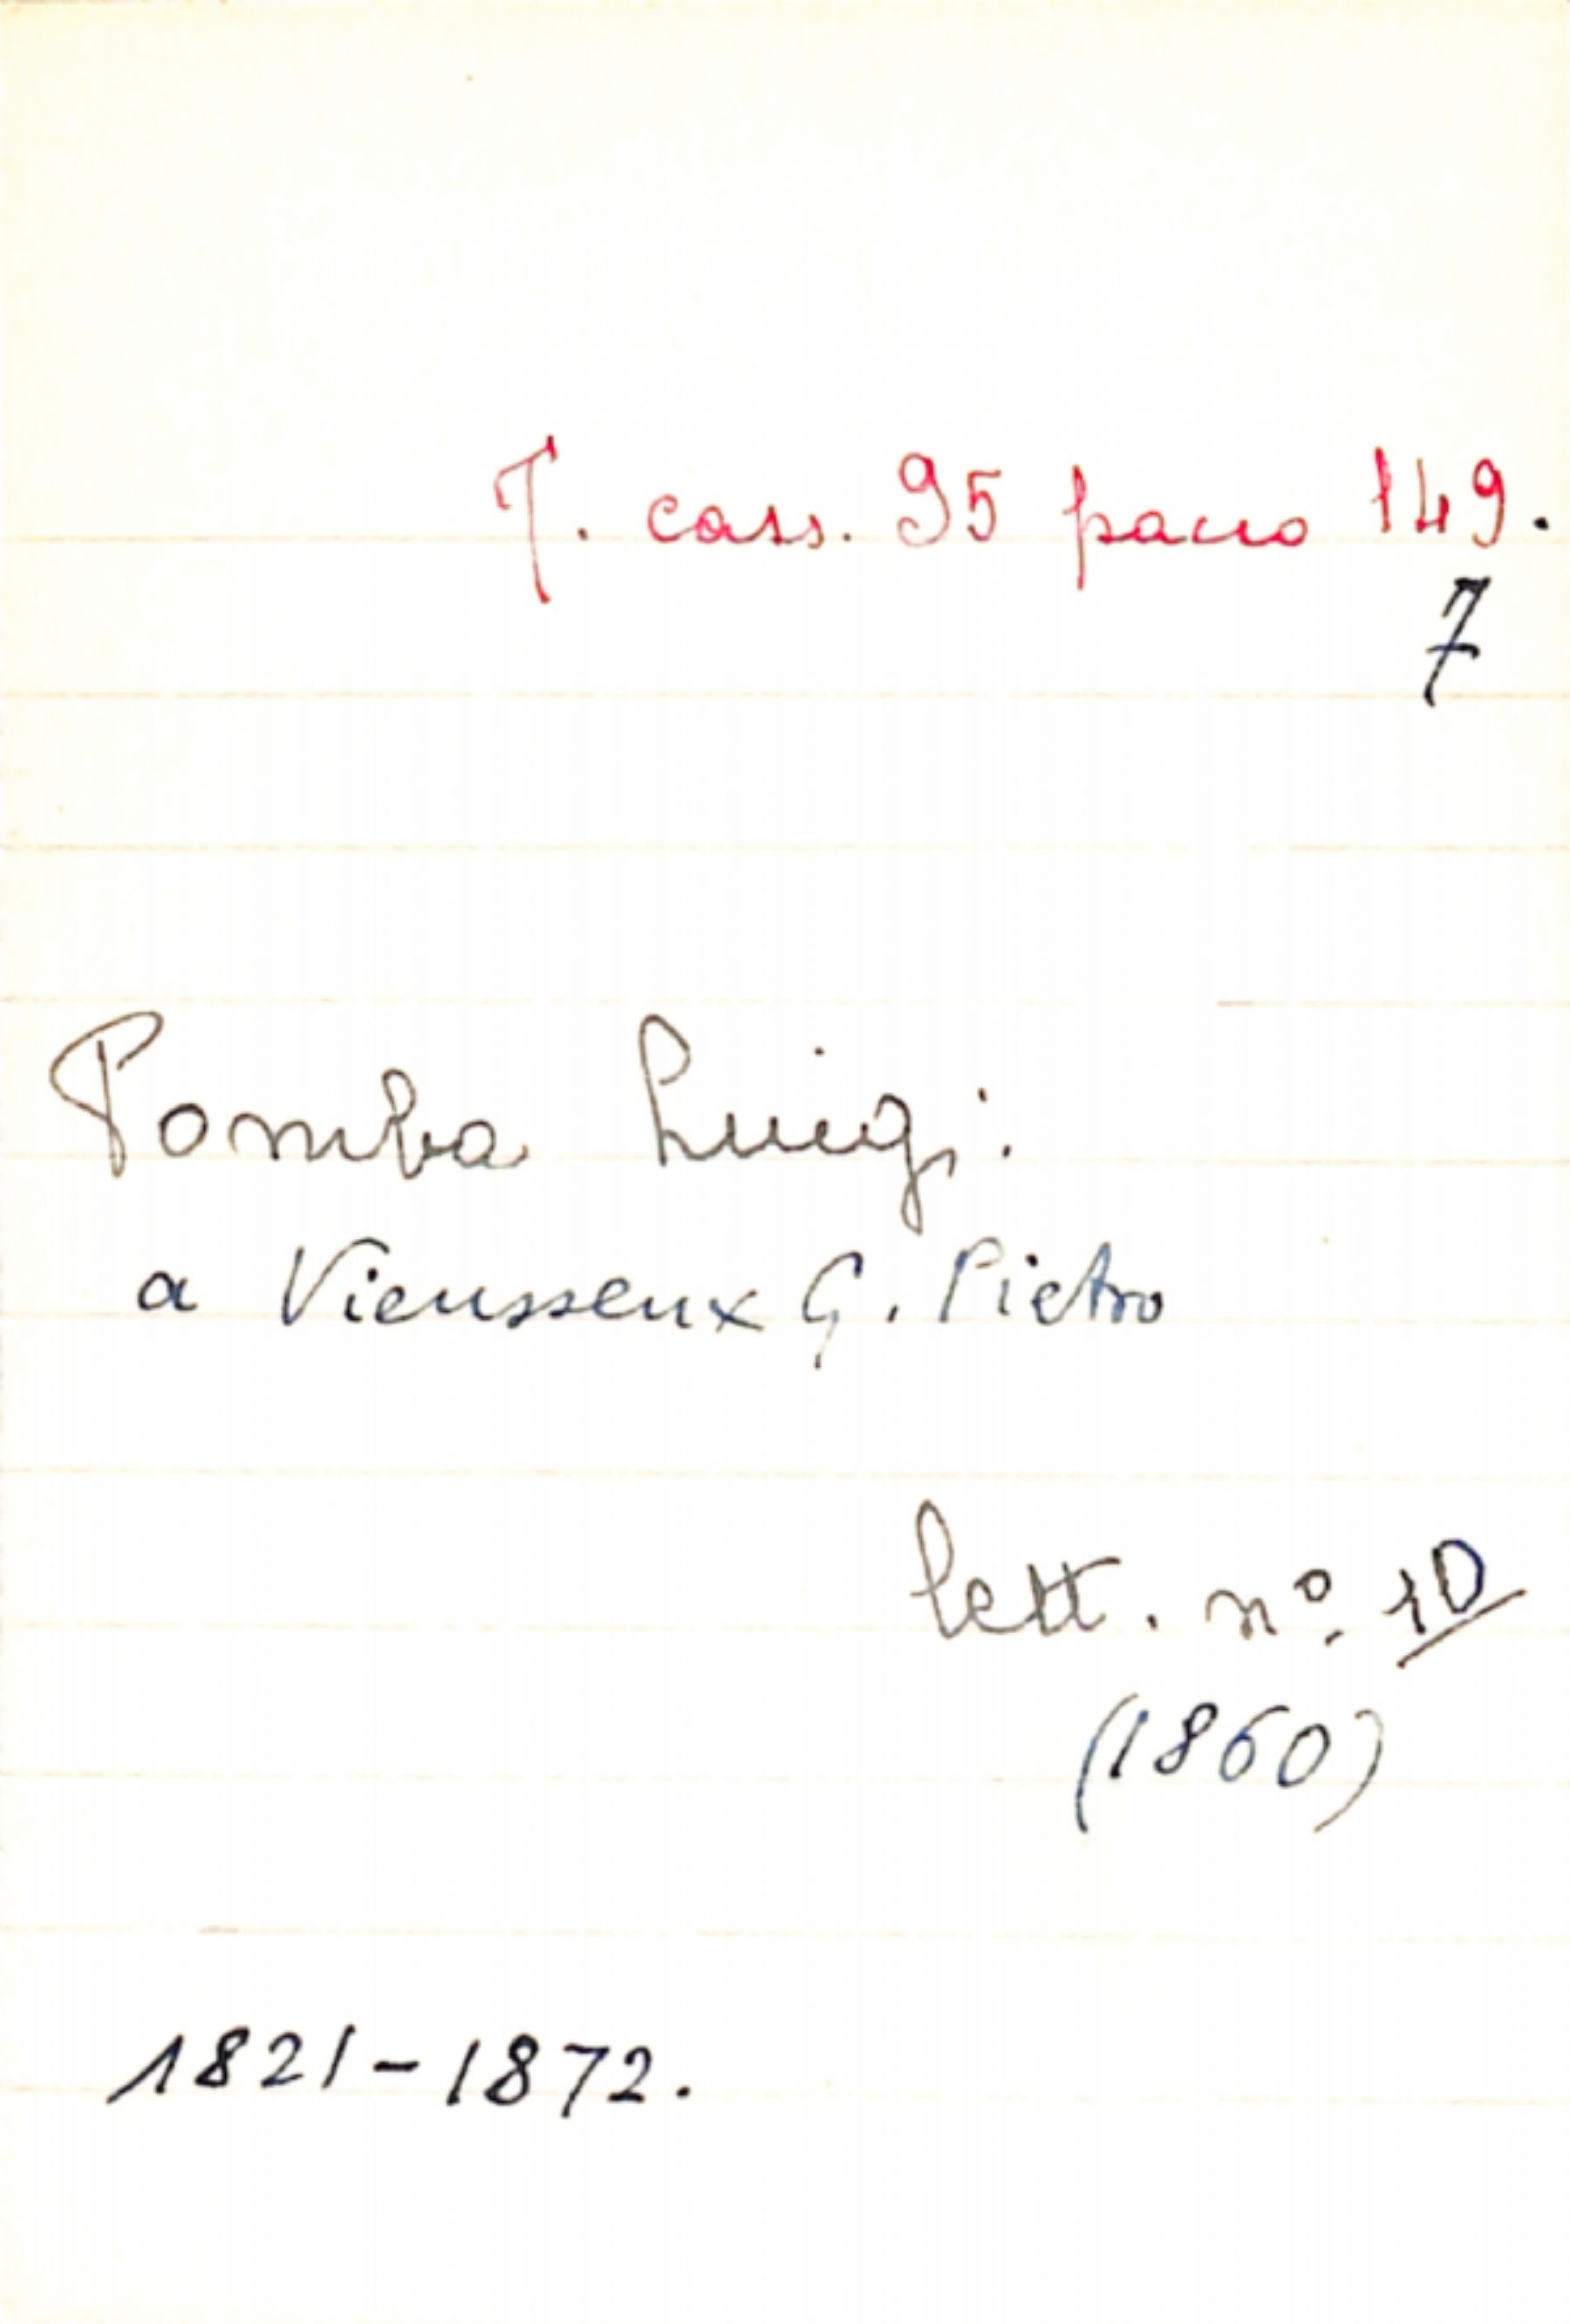 T. cass. 95 pacco 149.
7
Pomba Luigi.
a Vieusseux G. Pietro
lett. nº. 10
(1860)
1821-1872.